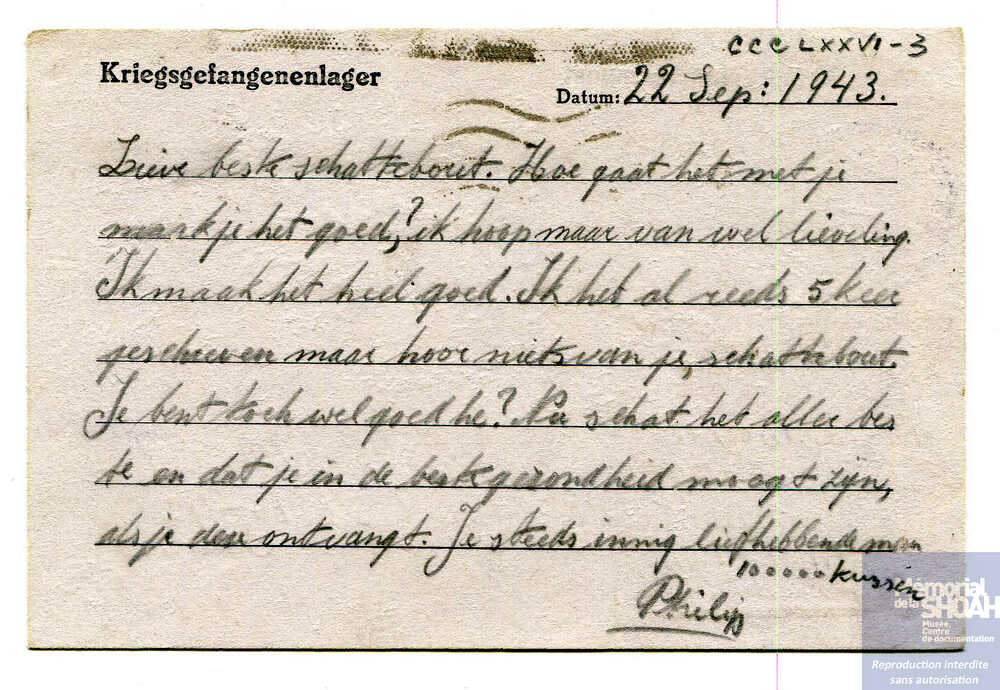 CCCLXXVI-3
Kriegsgefangenenlager
Datum: 22 Sep: 1943.
Lieve beste schattebout. Hoe gaat het met je
maak je het goed,? ik hoop maar van wel lieveling.
Ik maak het heel goed. Ik heb al reeds 5 keer
geschreven maar hoor niets van je, schattebout.
Je bent toch wel goed he? Nu schat het aller bes
te en dat je in de beste gezondheid moogt zijn,
als je deze ontvangt. Je steeds innig liefhebbende man
100000 kussen
Philip
Mémorial
de la SHOAH
Musée,
Centre
de documentation
Reproduction interdite
sans autorisation